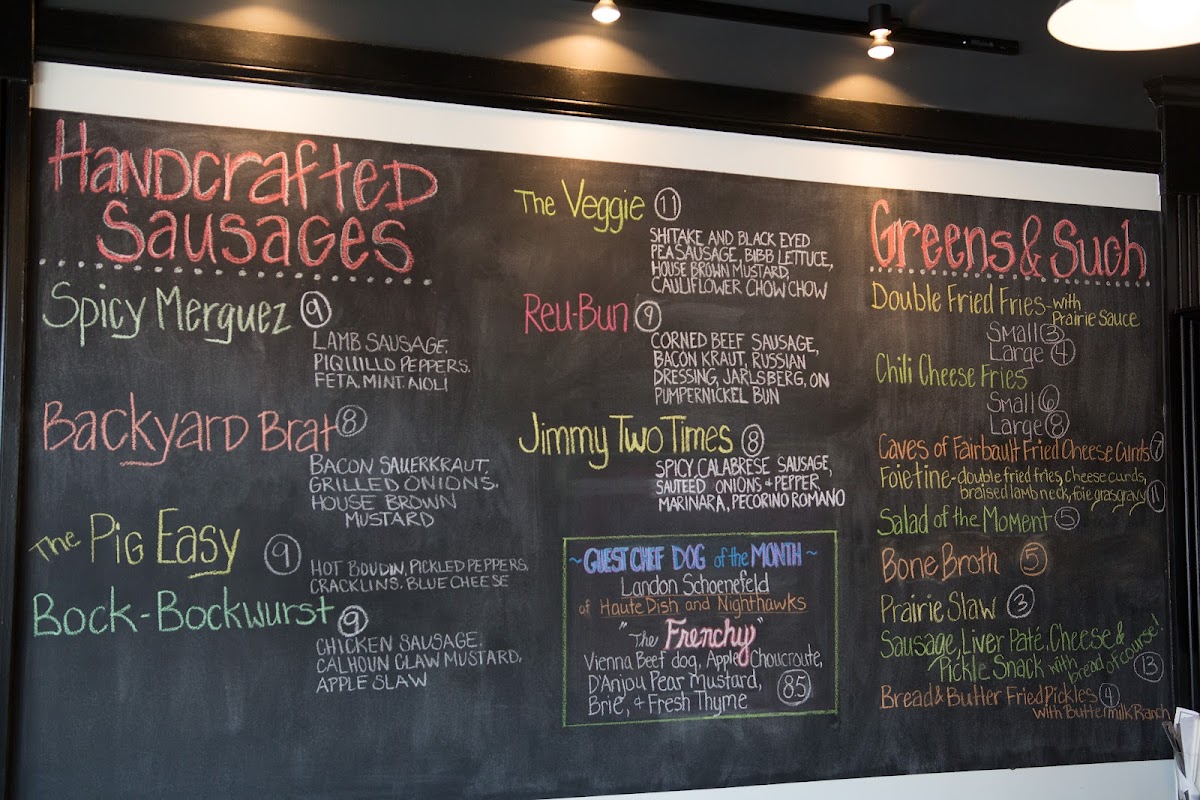 Handcrafted
Sausages
Spicy Merguez 9
LAMB SAUSAGE,
PIQUILLO PEPPERS,
FETA, MINT, AIOLI
Backyard Brat 8
BACON SAUERKRAUT,
GRILLED ONIONS,
HOUSE BROWN
MUSTARD
The Pig Easy 9
HOT BOUDIN, PICKLED PEPPERS,
CRACKLINS, BLUE CHEESE
Bock-Bockwurst 9
CHICKEN SAUSAGE,
CALHOUN CLAW MUSTARD,
APPLE SLAW
The Veggie 11
SHITAKE AND BLACK EYED
PEA SAUSAGE, BIBB LETTUCE,
HOUSE BROWN MUSTARD,
CAULIFLOWER CHOW CHOW
Reu-Bun 9
CORNED BEEF SAUSAGE,
BACON KRAUT, RUSSIAN
DRESSING, JARLSBERG, ON
PUMPERNICKEL BUN
Jimmy Two Times 8
SPICY CALABRESE SAUSAGE,
SAUTEED ONIONS + PEPPER
MARINARA, PECORINO ROMANO
~GUEST CHEF DOG of the MONTH~
Landon Schoenefeld
of Haute Dish and Nighthawks
"The Frenchy"
Vienna Beef dog, Apple Choucroute,
D'Anjou Pear Mustard,
Brie, + Fresh Thyme 85
Greens & Such
Double Fried Fries-with
Prairie Sauce
Small 3
Large 4
Chili Cheese Fries
Small 6
Large 8
Caves of Fairbault Fried Cheese Curds 7
Foietine-double fried fries, cheese curds,
braised lamb neck, foie gras gravy 11
Salad of the Moment 5
Bone Broth 5
Prairie Slaw 3
Sausage, Liver Paté, Cheese &
Pickle Snack with bread of course! 13
Bread & Butter Fried Pickles 4
with Buttermilk Ranch